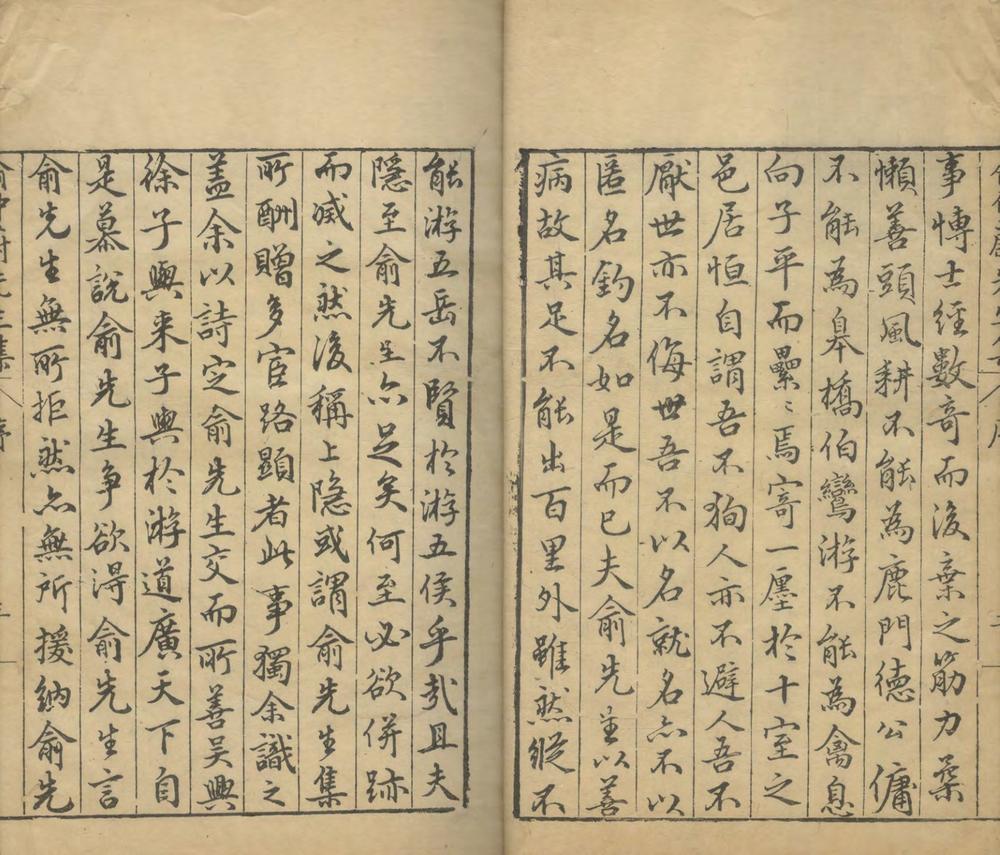 事博士經數奇而後棄之筋力柔
懶善頭風耕不能為鹿門德公傭
不能為臯橋伯鸞游不能為禽息
向子平而纍〻焉寄一廛於十室之
邑居恒自謂吾不狥人亦不避人吾不
厭世亦不侮世吾不以名就名亦不以
匿名釣名如是而已夫俞先生以善
病故其足不能出百里外雖然縱不
能游五岳不賢於游五侯乎㢤且夫
隱至俞先生亦足矣何至必欲併跡
而滅之然後稱上隱或謂俞先生集
所酬贈多宦路顯者此事獨余識之
盖余以詩定俞先生交而所善吳興
徐子輿来子輿於游道廣天下自
是慕說俞先生争欲淂俞先生言
俞先生無所拒然亦無所援納俞先